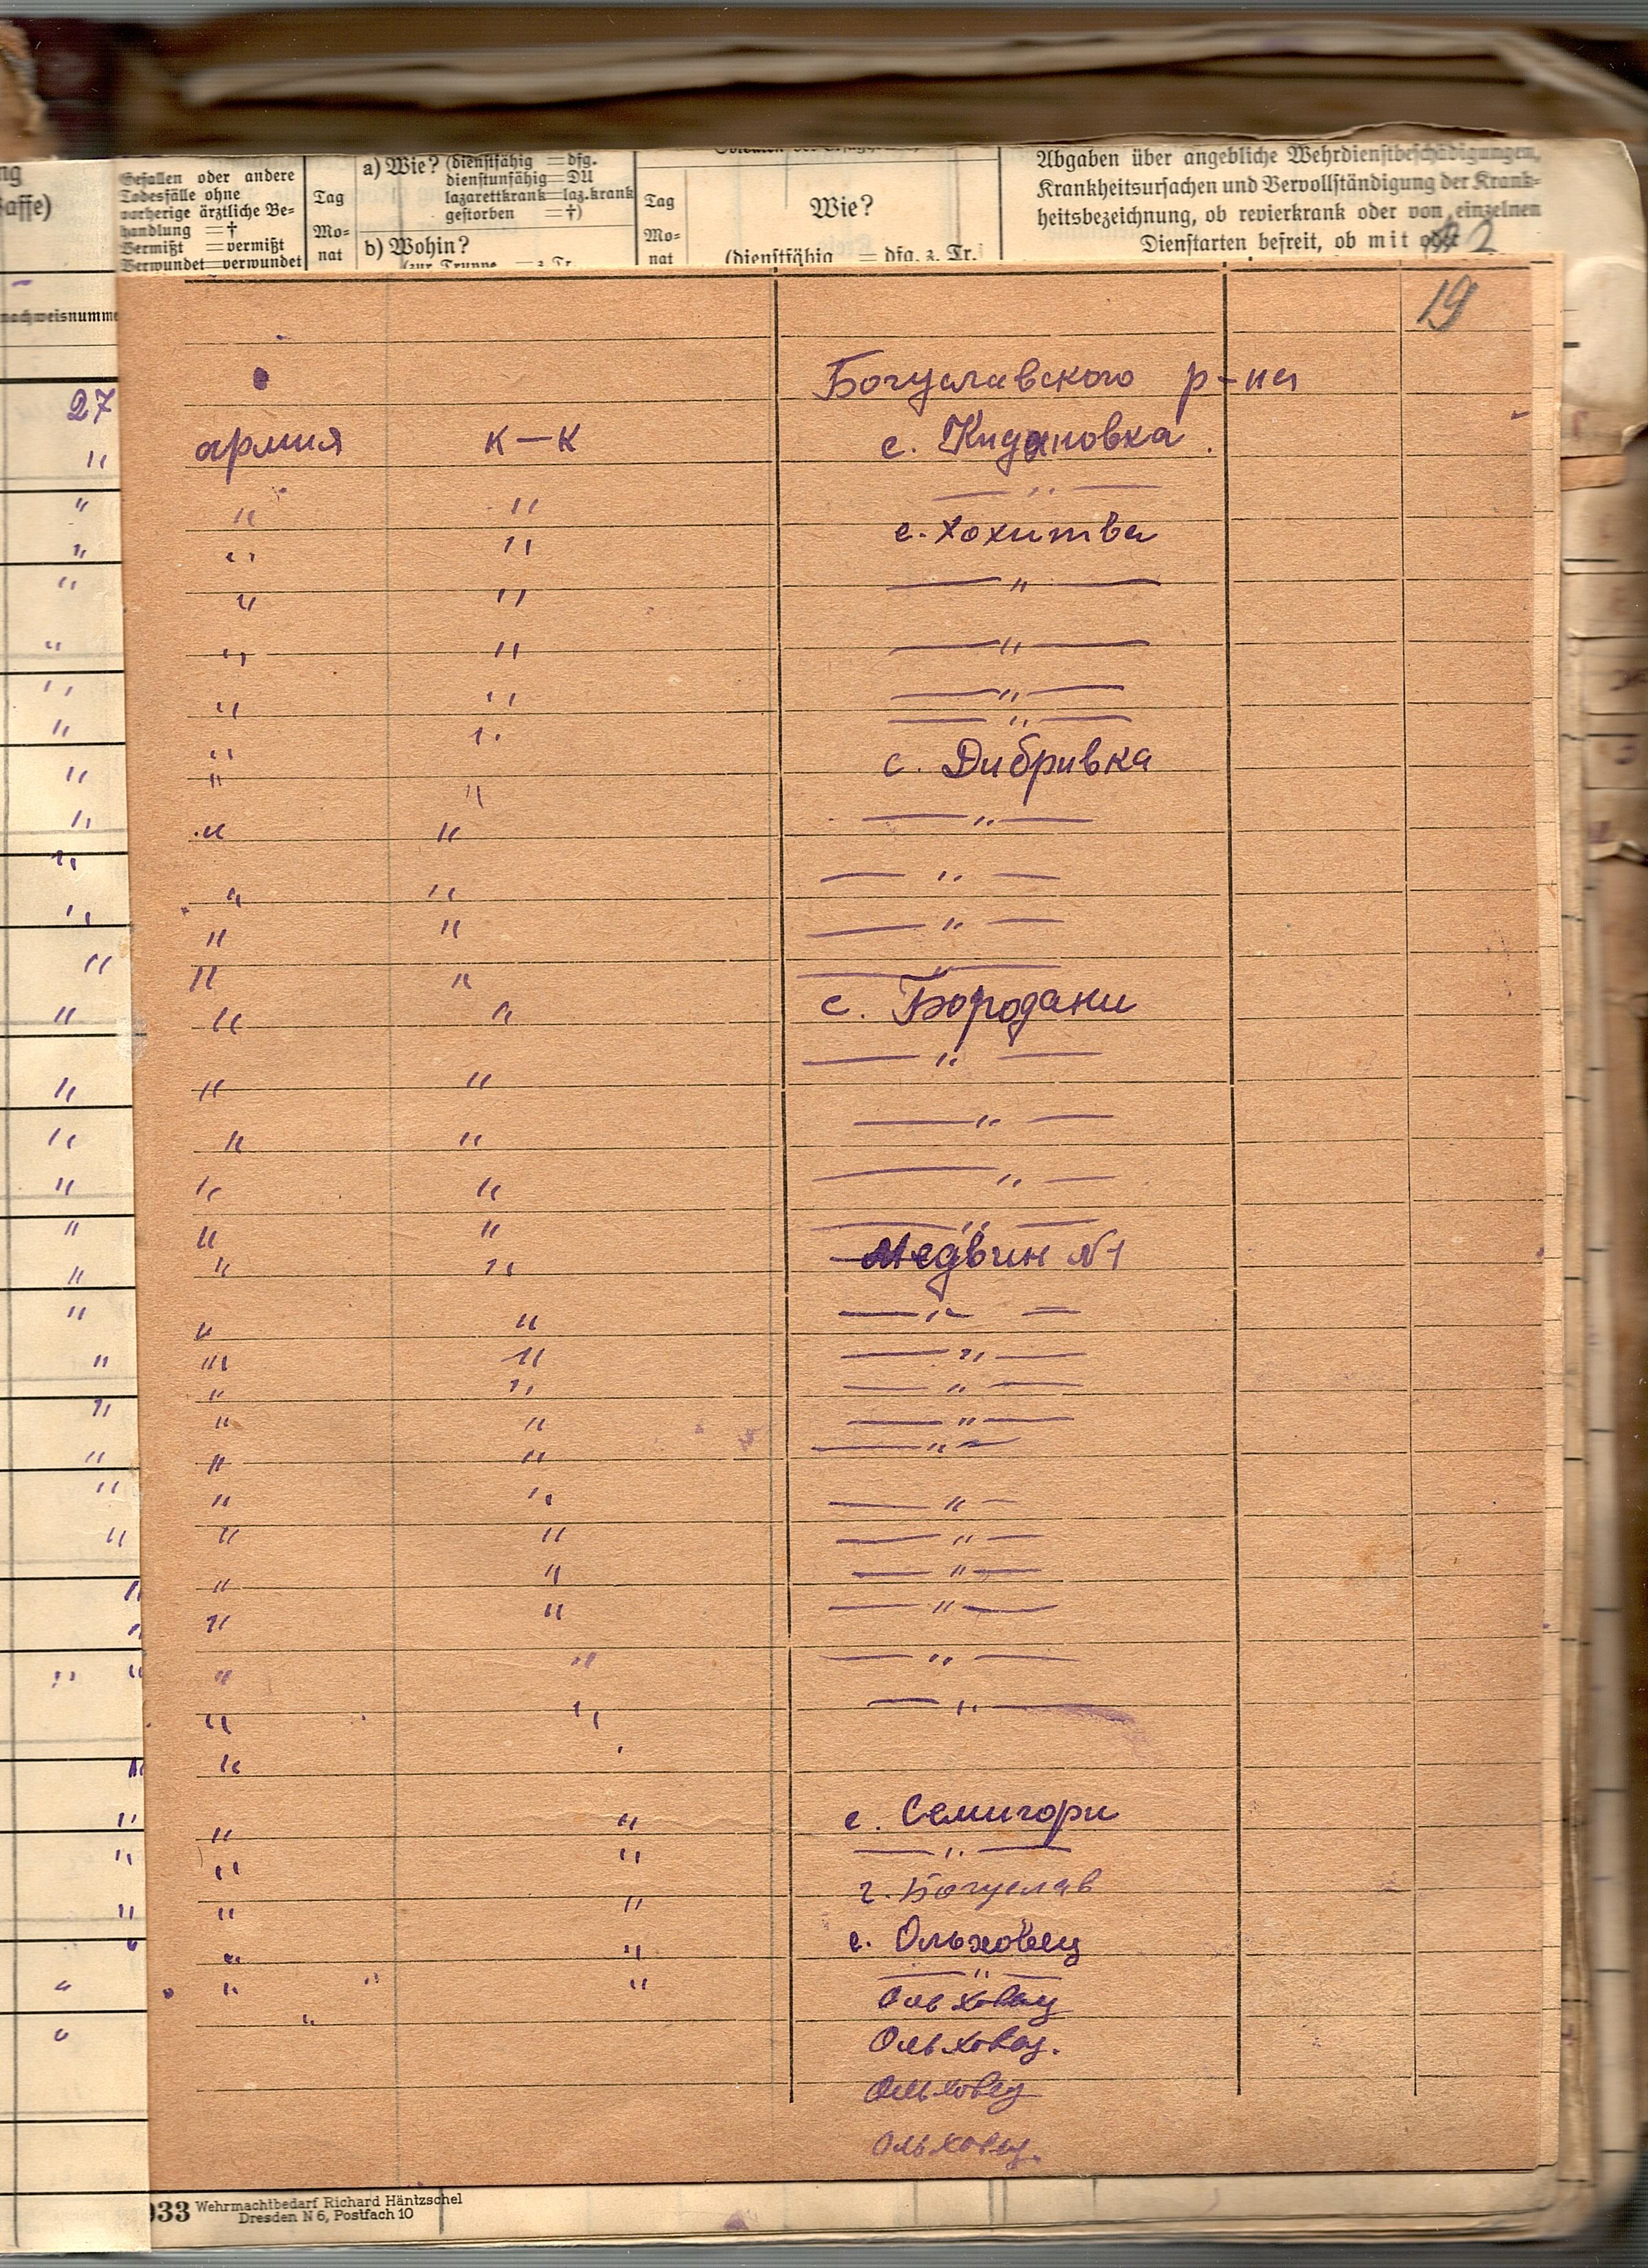 ng
affe)
Gefallen oder andere
Todesfälle ohne
vorherige ärztliche Be-
handlung = †
Vermißt = vermißt
Verwundet = verwundet
Tag
Mo-
nat
a) Wie? (dienstfähig = dfg.
dienstunfähig = DU
lazarettkrank = laz.krank
gestorben = †)
b) Wohin?
(zur Truppe = z. Tr.
Tag
Mo-
nat
Wie?
(dienstfähig = dfg. z. Tr.
Abgaben über angebliche Wehrdienstbeschädigungen,
Krankheitsursachen und Vervollständigung der Krank-
heitsbezeichnung, ob revierkrank oder von einzelnen
Dienstarten befreit, ob mit oder
nachweisnumme
19
27
Богуславского р-на
армия к—к с. Кидановка.
" " — " —
" " с. Хохитва
" " — " —
" " — " —
" " — " —
" " — " —
" " с. Дибривка
" " — " —
" " — " —
" " — " —
" " — " —
" " с. Бородани
" " — " —
" " — " —
" " — " —
" " — " —
" " Медвин №1
" " — " —
" " — " —
" " — " —
" " — " —
" " — " —
" " — " —
" " — " —
" " — " —
" " — " —
" " — " —
" " — " —
"
" " с. Семигори
" " — " —
" " г. Богуслав
" " с. Ольховец
" " " — " —
" Ольховец
Ольховец.
Ольховец
Ольховец.
933 Wehrmachtbedarf Richard Häntzschel
Dresden N 6, Postfach 10